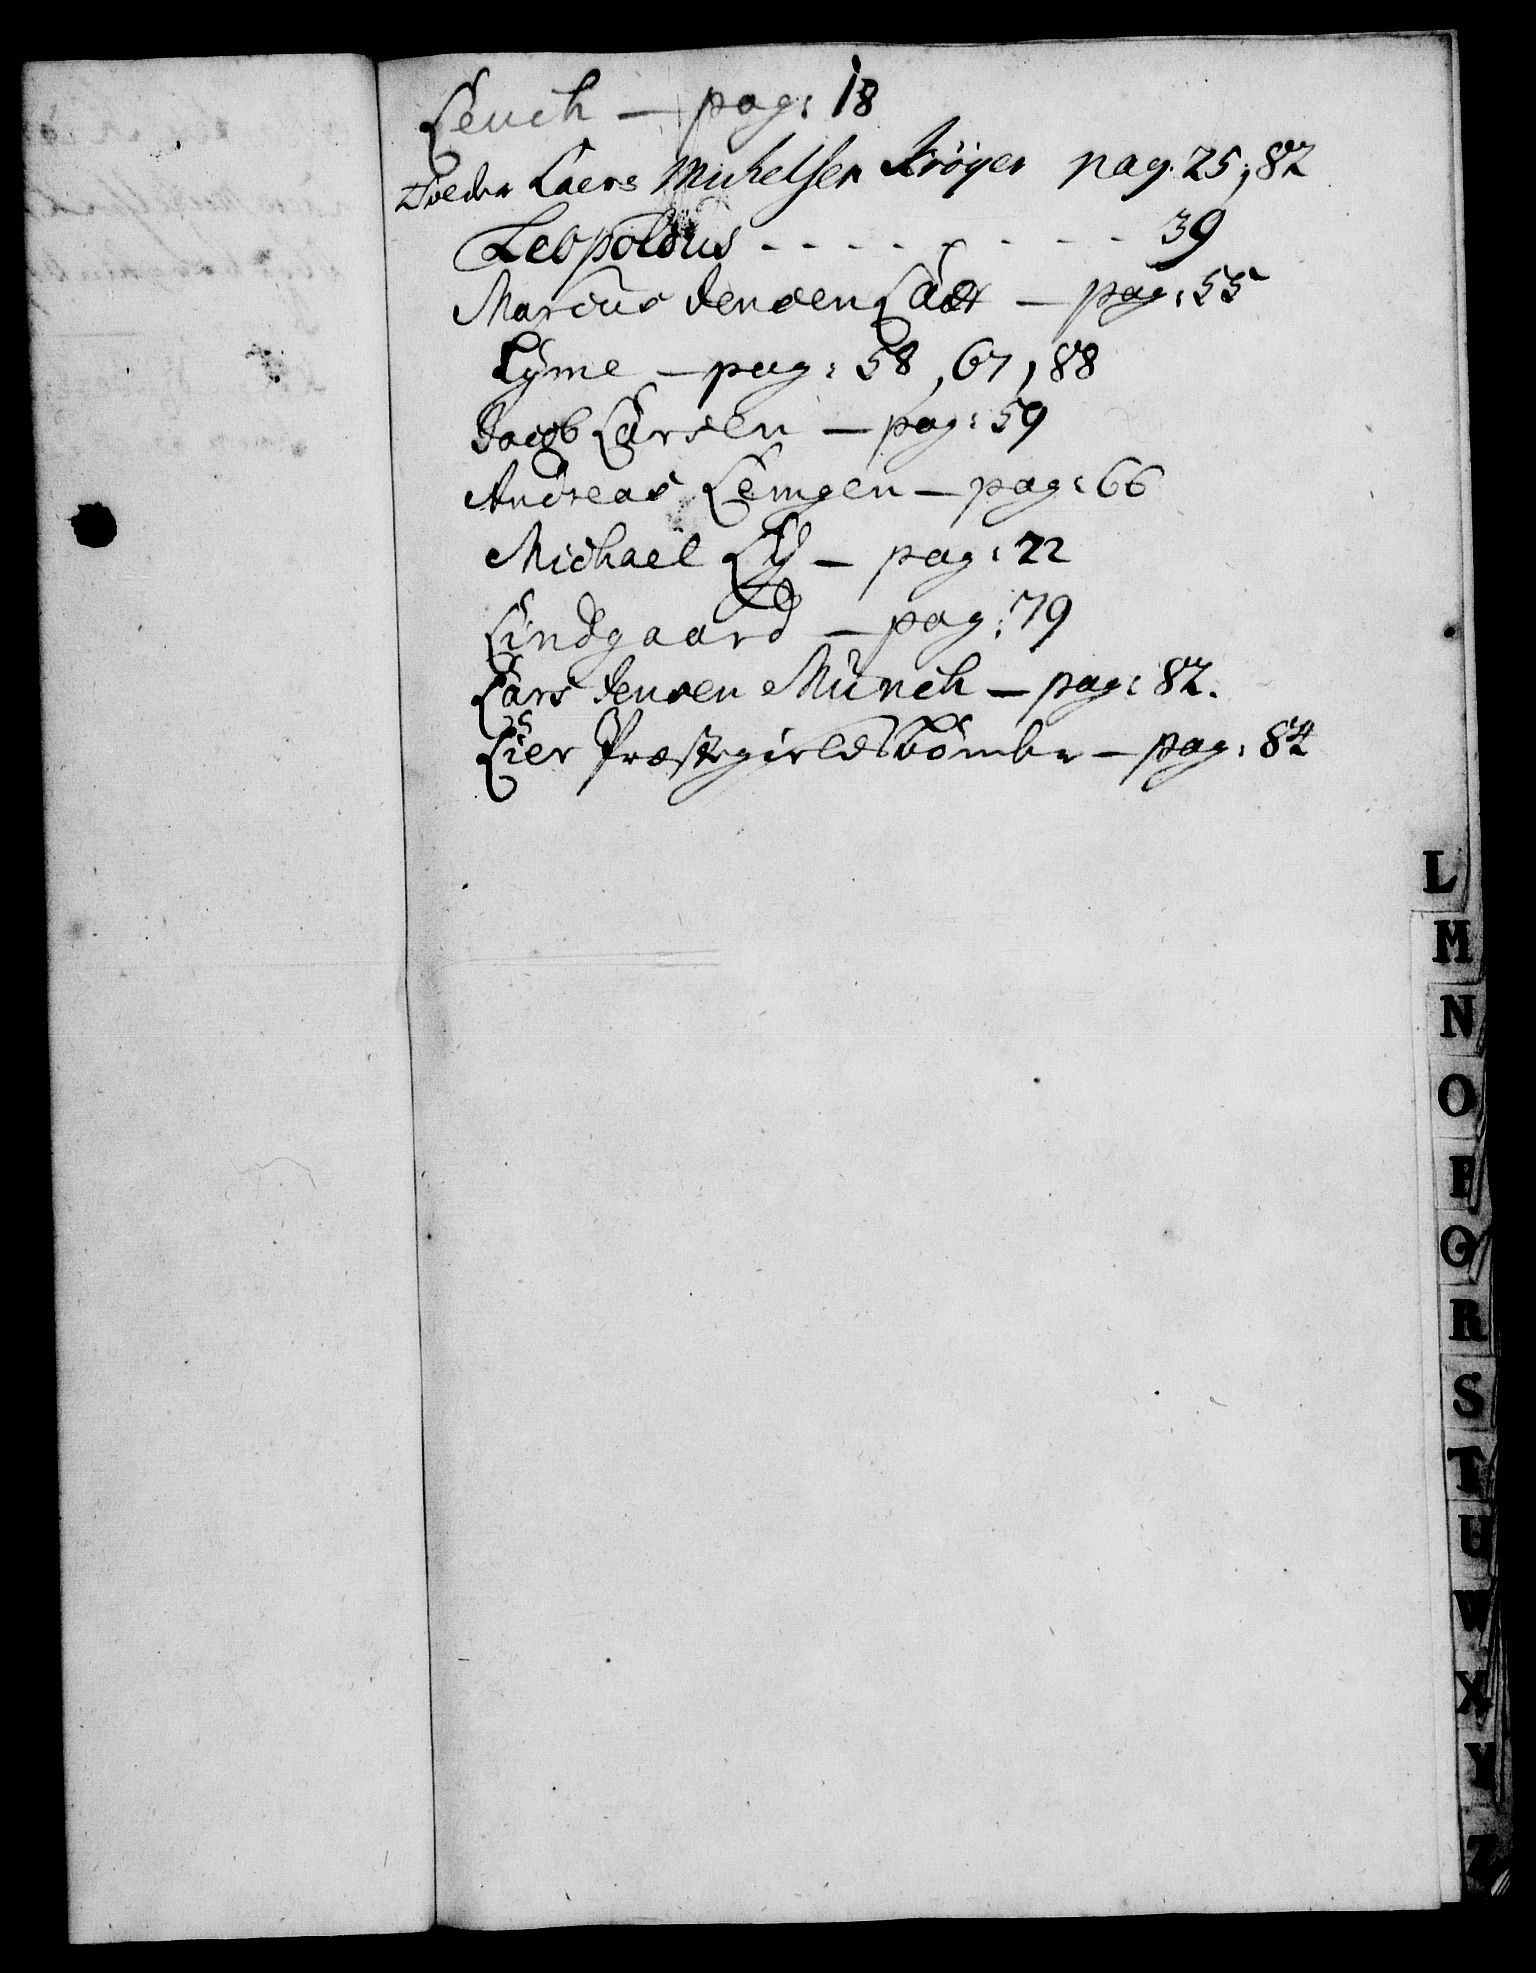 Leuch — pag: 18
Laers Michelsen Krøyer pag. 25, 82
Leopoldus - - - - - - - - 39
Marcus Jensen — pag: 55
Lyme — pag: 58, 67, 88
Jacob Larsen — pag: 59
Andreas Lemgen — pag: 66
Michael Ly — pag: 72
Lindgaard — pag: 79
Lars Jensen Munch — pag: 82.
Lier — pag: 84
L
M
N
O
P
Q
R
S
T
U
W
X
Y
Z